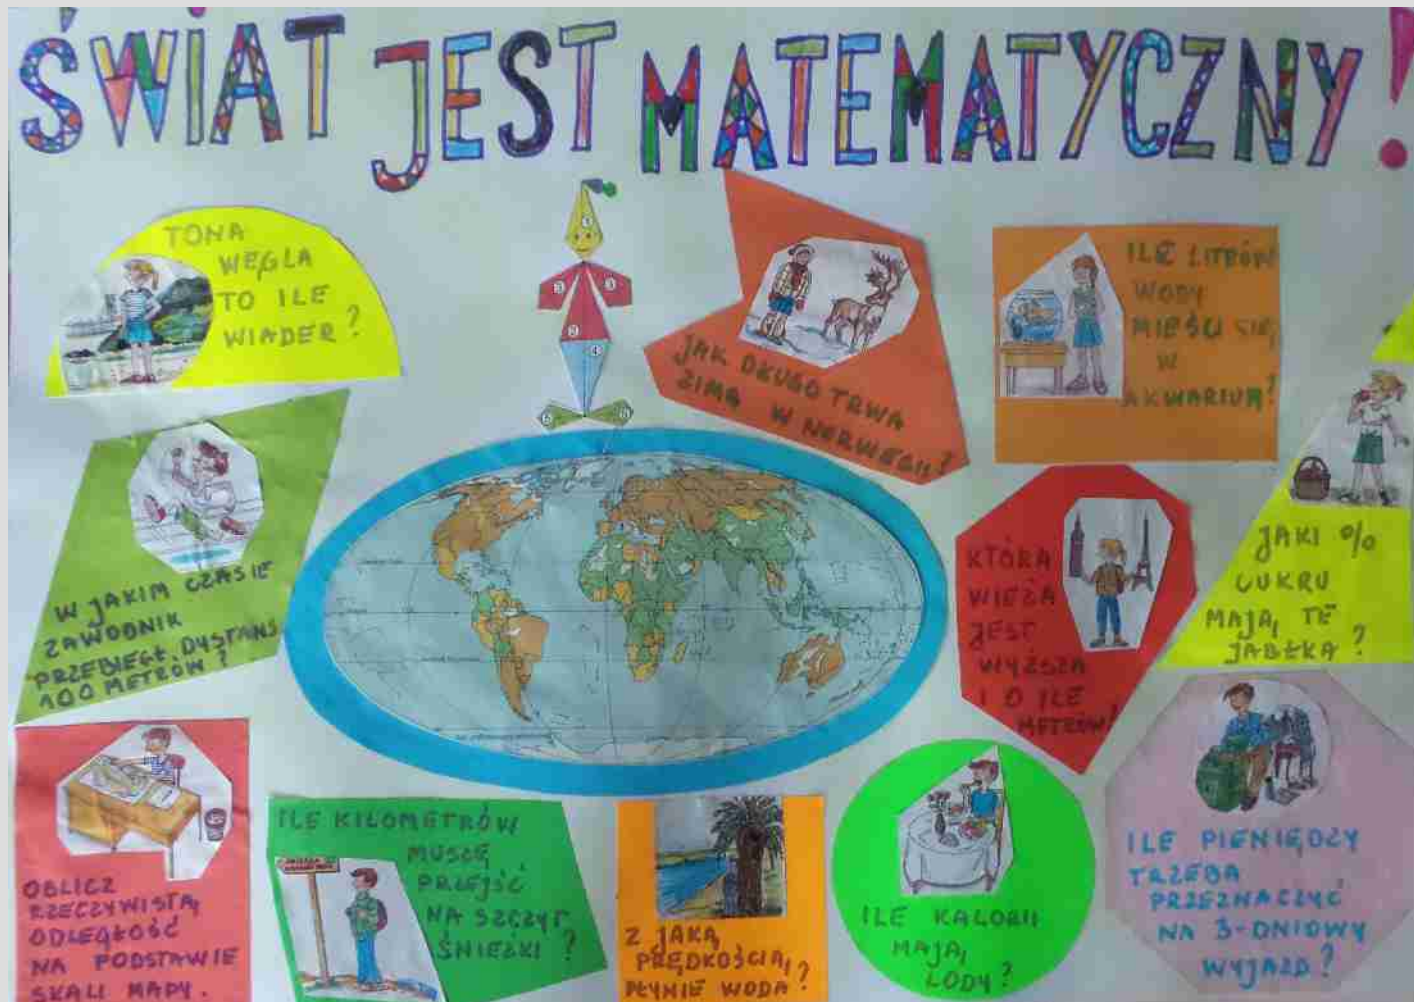 ŚWIAT JEST MATEMATYCZNY!
TONA
WĘGLA
TO ILE
WIADER?
1
3
3
2
4
JAK DŁUGO TRWA
ZIMA W NORWEGII?
ILE LITRÓW
WODY
MIEŚCI SIĘ
W
AKWARIUM?
W JAKIM CZASIE
ZAWODNIK
PRZEBIEGŁ DYSTANS
100 METRÓW?
KTÓRA
WIEŻA
JEST
WYŻSZA
I O ILE
METRÓW?
JAKI %
CUKRU
MAJĄ TE
JABŁKA?
OBLICZ
RZECZYWISTĄ
ODLEGŁOŚĆ
NA PODSTAWIE
SKALI MAPY.
ILE KILOMETRÓW
MUSZĘ
PRZEJŚĆ
NA SZCZYT
ŚNIEŻKI?
Z JAKĄ
PRĘDKOŚCIĄ
PŁYNIE WODA?
ILE KALORII
MAJĄ
LODY?
ILE PIENIĘDZY
TRZEBA
PRZEZNACZYĆ
NA 3-DNIOWY
WYJAZD?